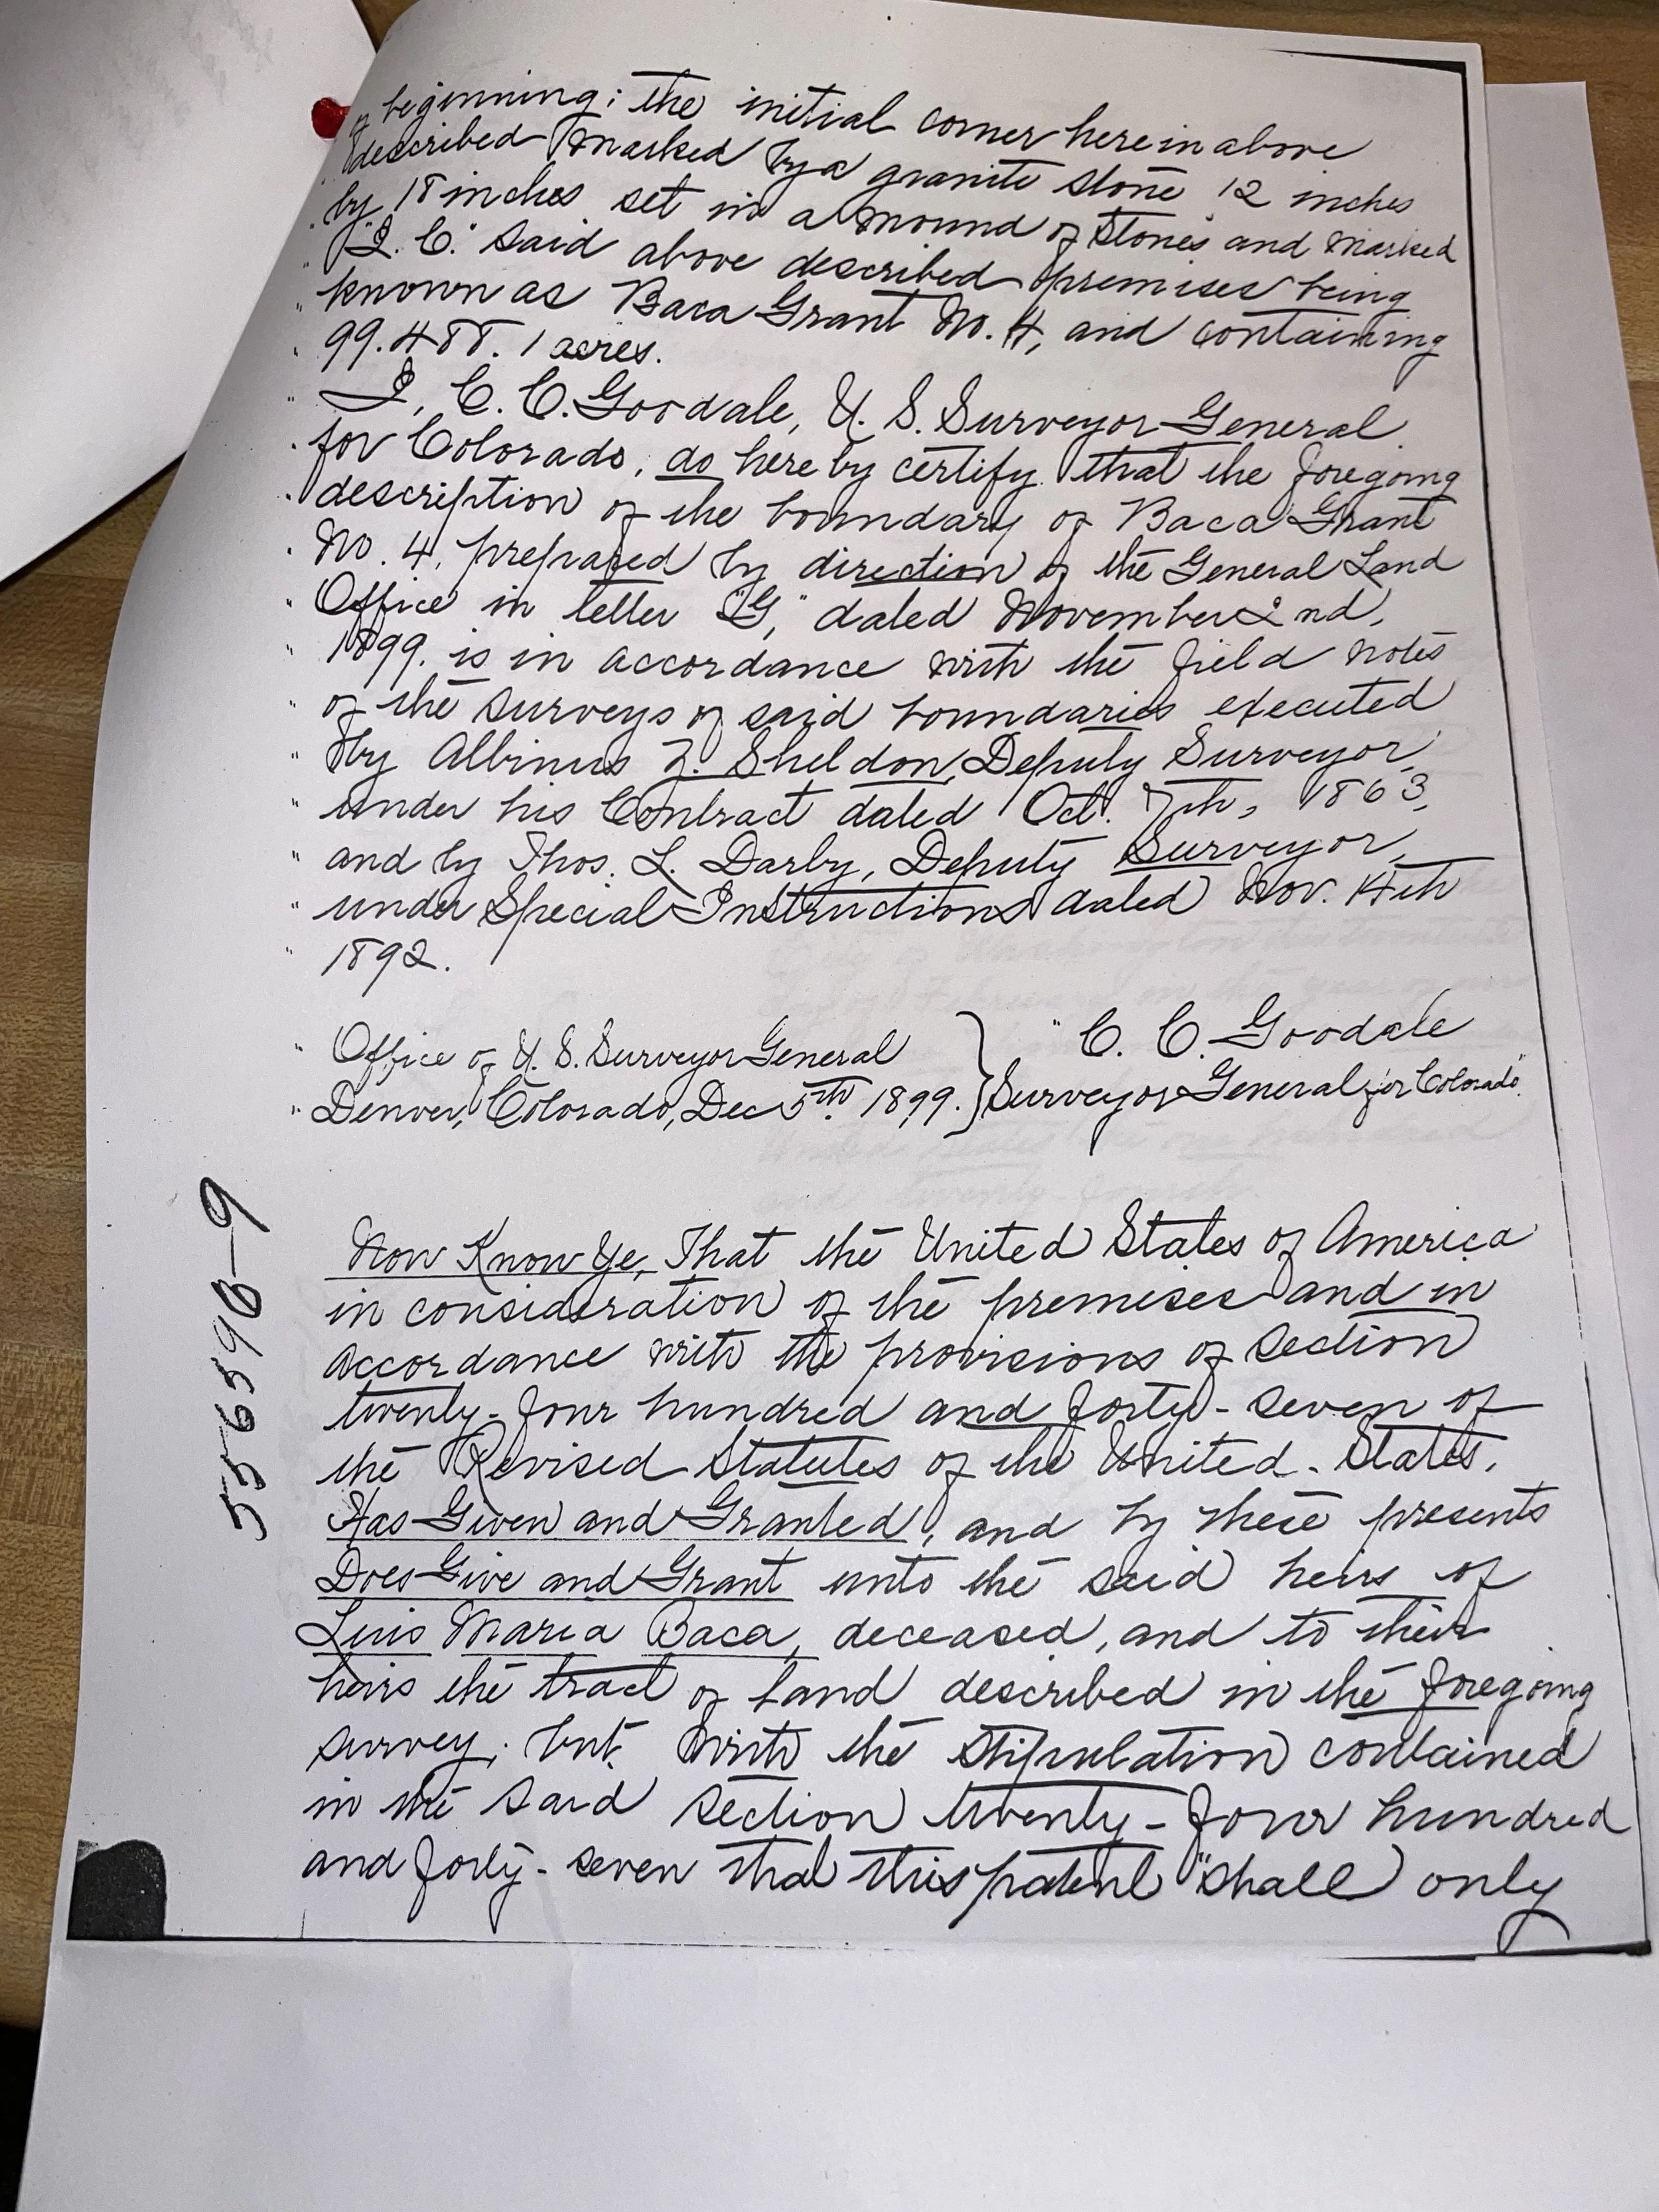 of beginning; the initial corner hereinabove
" described marked by a granite stone 12 inches
" by 18 inches set in a mound of stones and marked
" "I. C." Said above described premises being
" known as Baca Grant No. 4, and containing
" 99.488.1 acres.
" I, C. C. Goodale, U. S. Surveyor General
" for Colorado, do hereby certify that the foregoing
" description of the boundary of Baca Grant
" No. 4, prepared by direction of the General Land
" Office in letter "G," dated November 2nd,
" 1899. is in accordance with the field notes
" of the surveys of said boundaries executed
" by Albinus Z. Sheldon, Deputy Surveyor,
" under his Contract dated Oct. 7th, 1863,
" and by Thos. L. Darby, Deputy Surveyor,
" under Special Instructions dated Nov. 14th
" 1892.
" Office of U. S. Surveyor General } " C. C. Goodale
" Denver, Colorado, Dec 5th 1899. } Surveyor General for Colorado"
556596-9
Now Know Ye, That the United States of America
in consideration of the premises and in
accordance with the provisions of section
twenty-four hundred and forty-seven of
the Revised Statutes of the United States,
Has Given and Granted, and by these presents
Does Give and Grant unto the said heirs of
Luis Maria Baca, deceased, and to their
heirs the tract of land described in the foregoing
survey; but with the stipulation contained
in the said section twenty-four hundred
and forty-seven that this patent "shall only